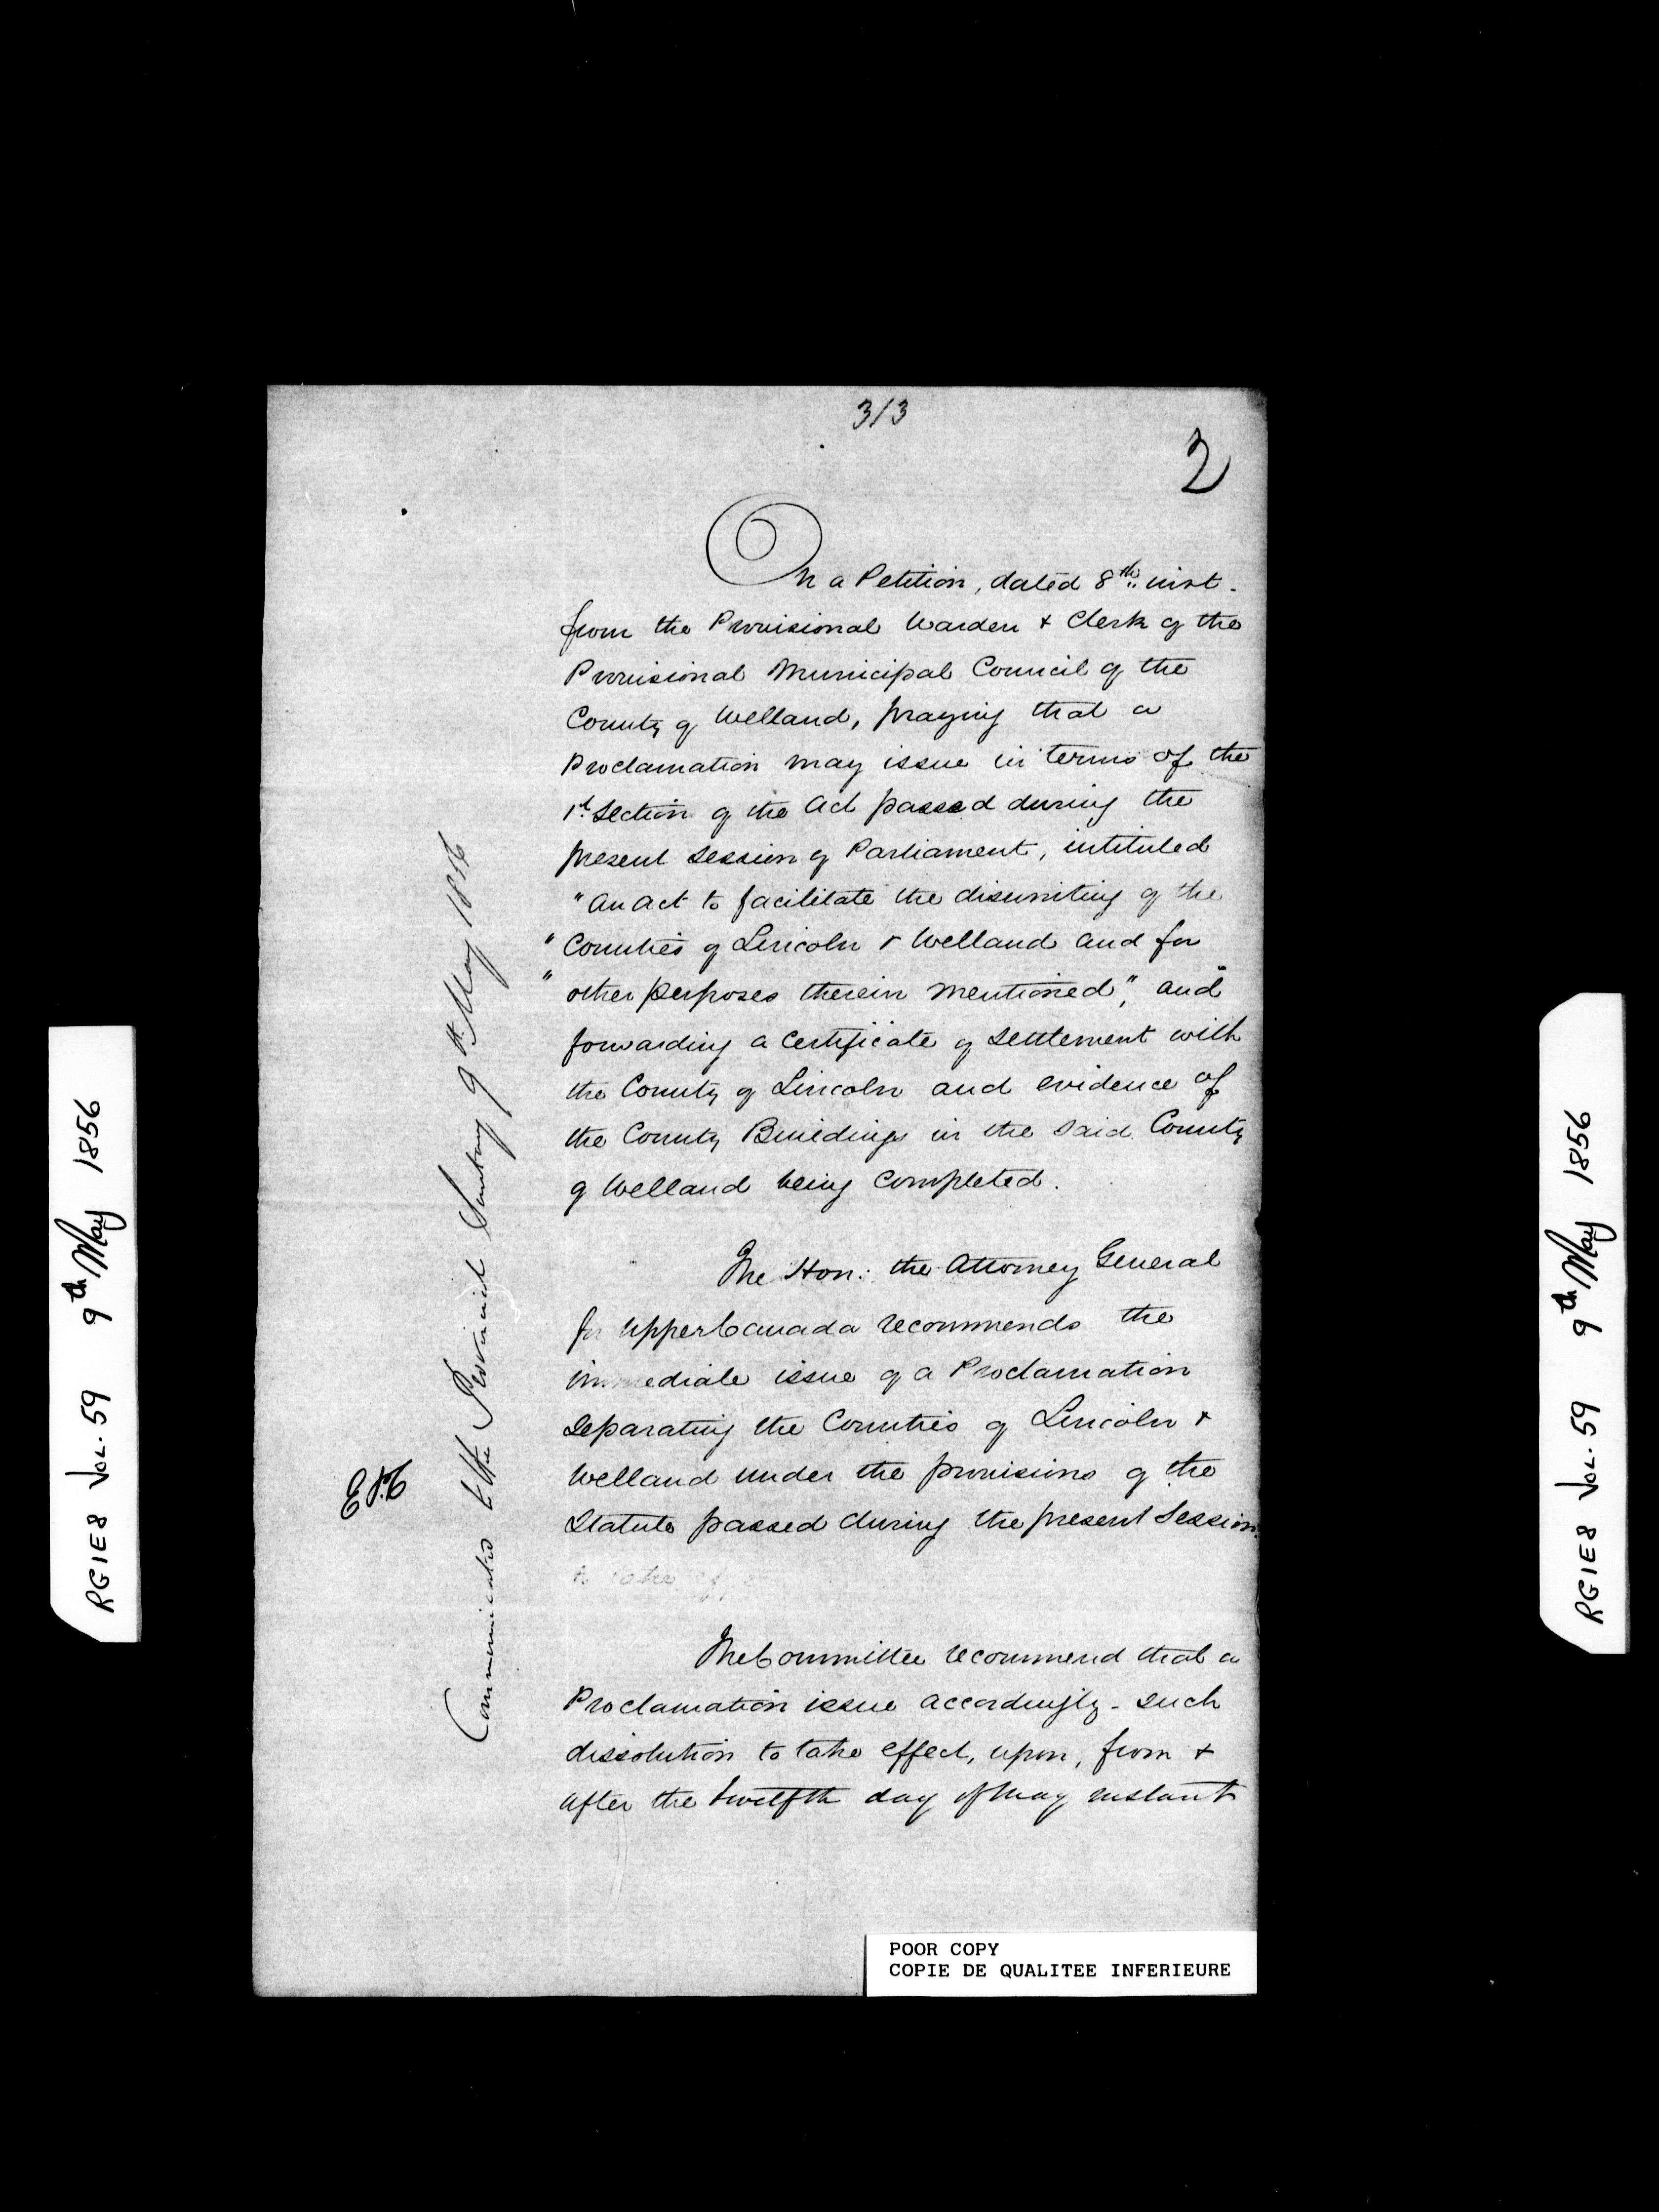 313
2
On a Petition, dated 8th inst.
from the Provisional Warden & Clerk of the
Provisional Municipal Council of the
County of Welland, praying that a
Proclamation may issue in terms of the
1st Section of the Act passed during the
present Session of Parliament, intituled
"An Act to facilitate the disuniting of the
"Counties of Lincoln & Welland and for
"other purposes therein mentioned", and
forwarding a Certificate of Settlement with
the County of Lincoln and evidence of
the County Buildings in the said County
of Welland being completed.
The Hon: the Attorney General
for Upper Canada recommends the
immediate issue of a Proclamation
separating the Counties of Lincoln &
Welland under the provisions of the
Statute passed during the present Session
to take
The Committee recommend that a
Proclamation issue accordingly - such
dissolution to take effect, upon, from &
after the twelfth day of May instant
Communicated to the Provincial Secretary 9th May 1856
RG1E8 VOL. 59 9th May 1856
RG1E8 VOL. 59 9th May 1856
POOR COPY
COPIE DE QUALITEE INFERIEURE